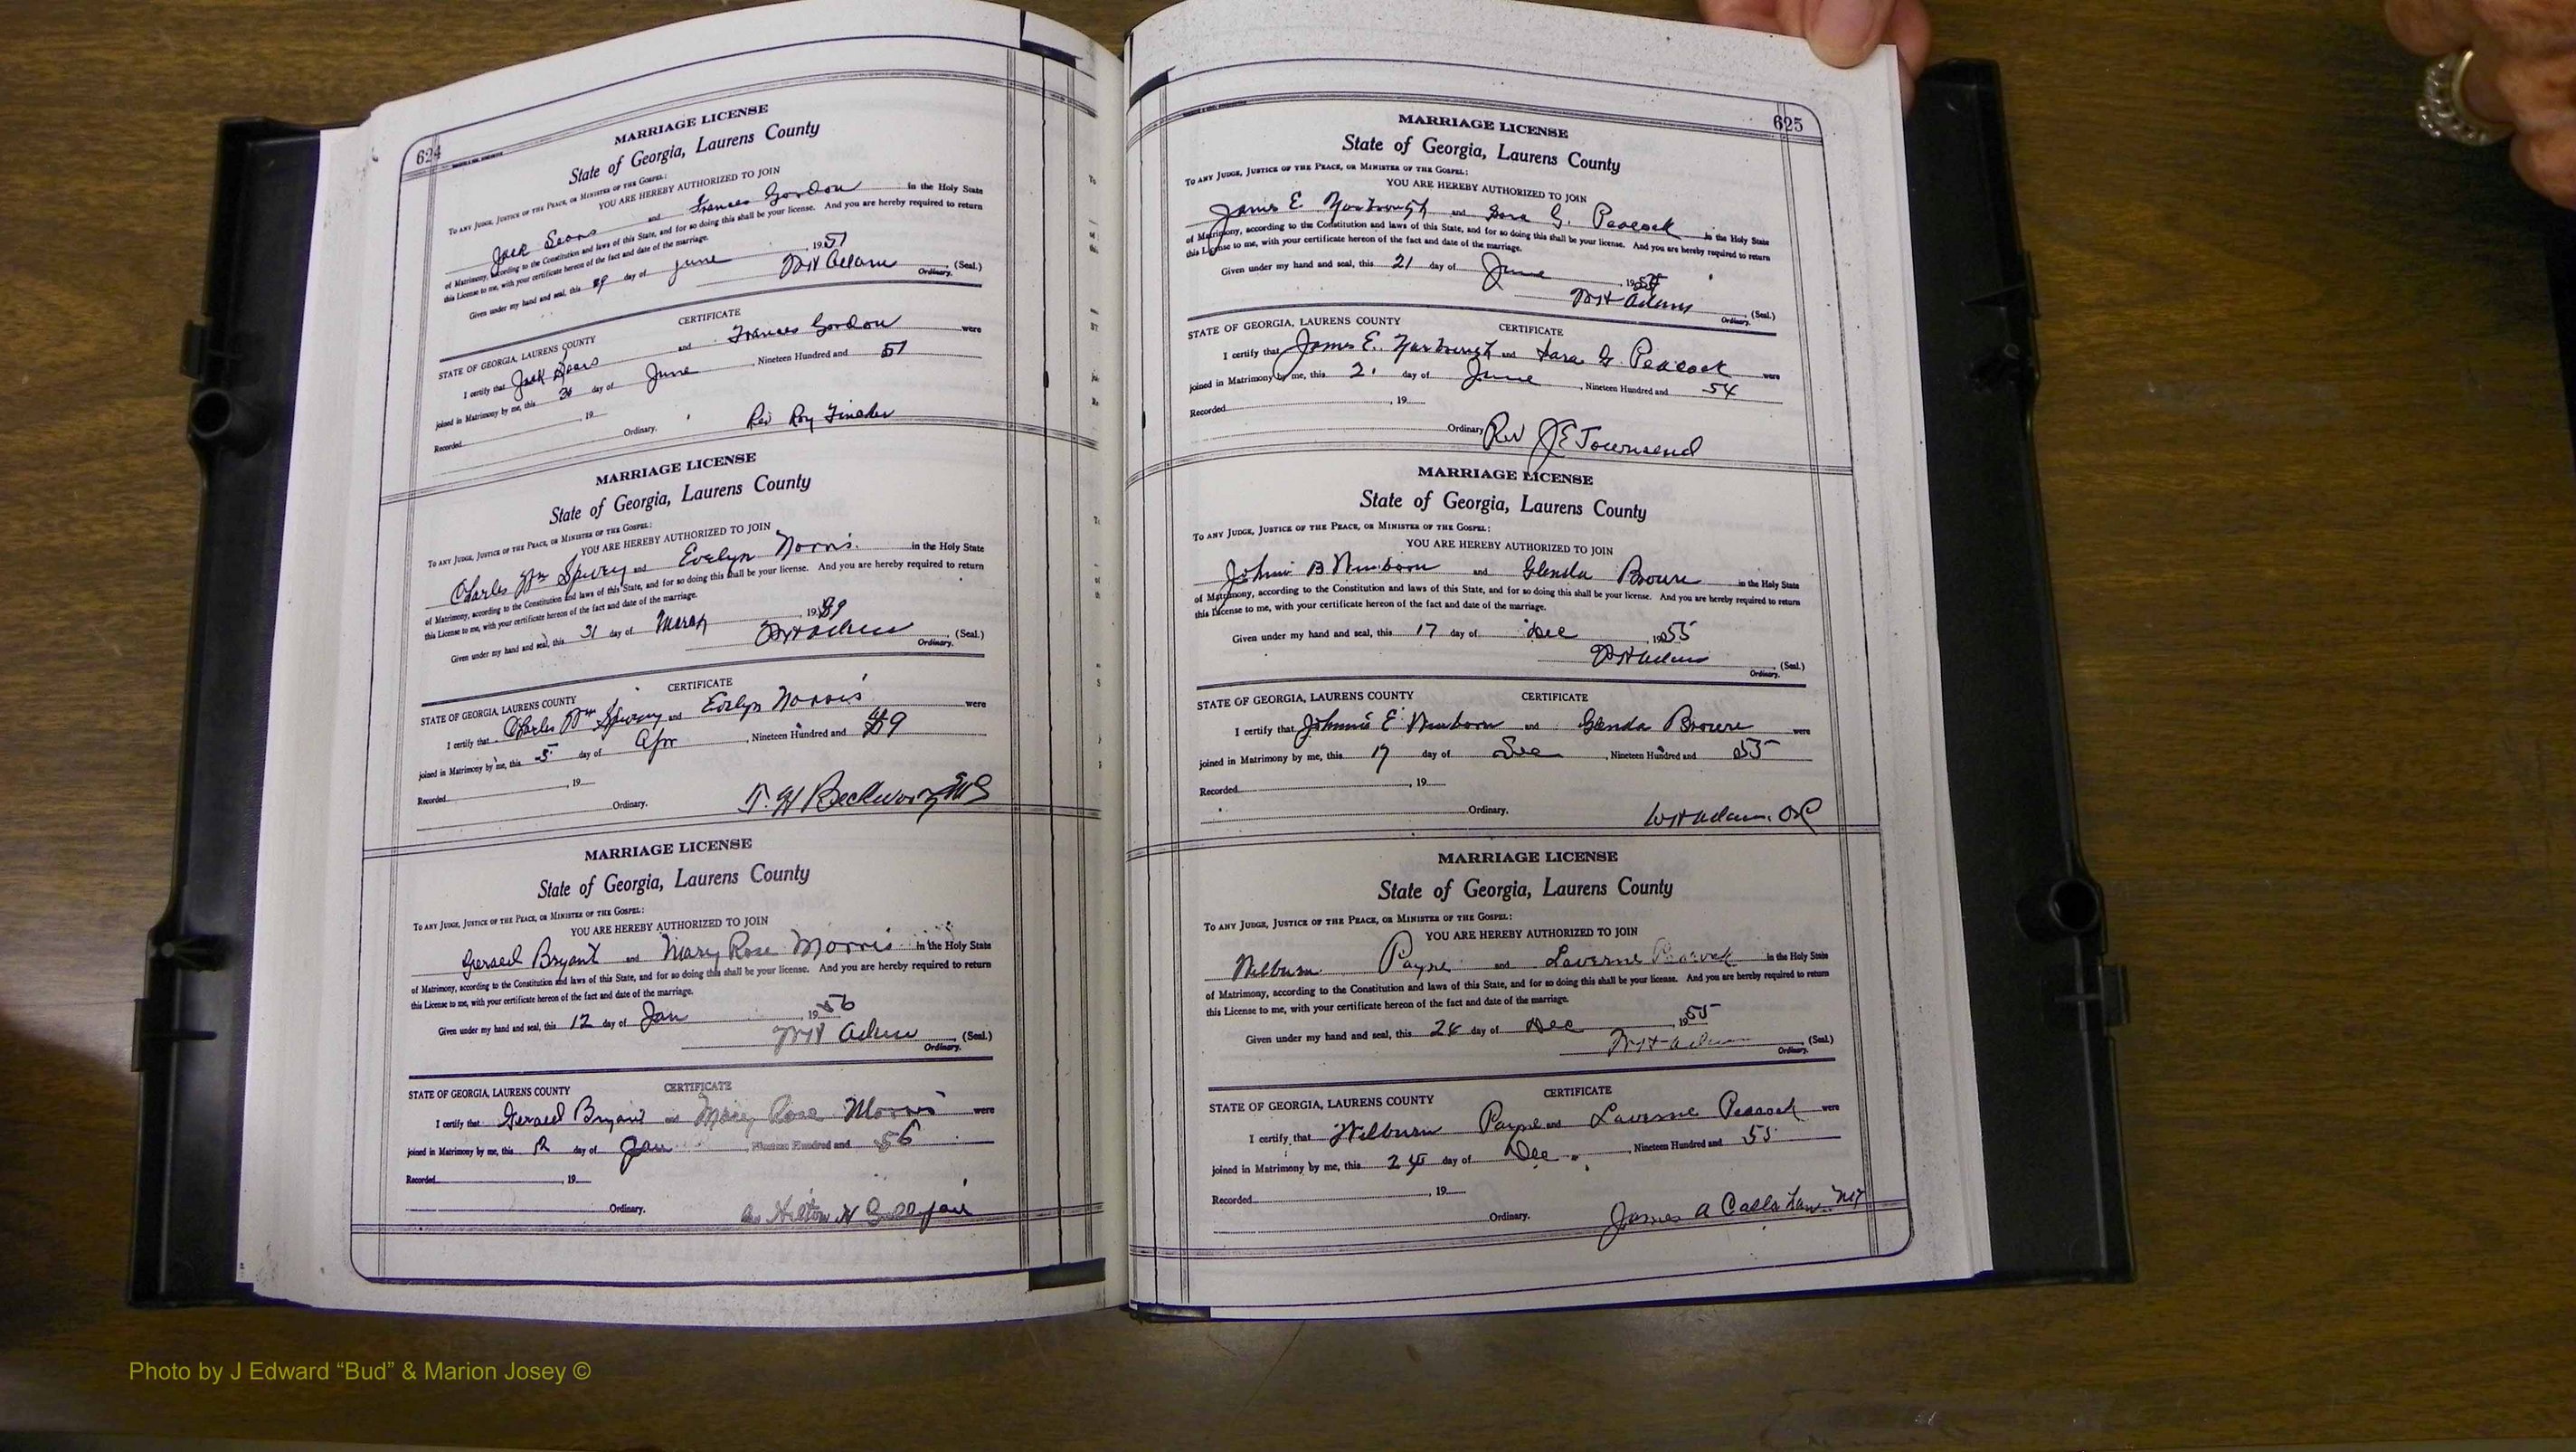 624
MARRIAGE LICENSE
State of Georgia, Laurens County
To any Judge, Justice of the Peace, or Minister of the Gospel:
YOU ARE HEREBY AUTHORIZED TO JOIN
Jack Sears and Frances Gordon in the Holy State
of Matrimony, according to the Constitution and laws of this State, and for so doing this shall be your license. And you are hereby required to return
this License to me, with your certificate hereon of the fact and date of the marriage.
Given under my hand and seal, this day of June 1951
WH Adams (Seal.)
Ordinary.
CERTIFICATE
STATE OF GEORGIA, LAURENS COUNTY
I certify that Jack Sears and Frances Gordon were
joined in Matrimony by me, this day of June, Nineteen Hundred and 51
Recorded , 19
Ordinary. Rev Roy
MARRIAGE LICENSE
State of Georgia, Laurens County
To any Judge, Justice of the Peace, or Minister of the Gospel:
YOU ARE HEREBY AUTHORIZED TO JOIN
Charles Wm Spivey and Evelyn Norris in the Holy State
of Matrimony, according to the Constitution and laws of this State, and for so doing this shall be your license. And you are hereby required to return
this License to me, with your certificate hereon of the fact and date of the marriage.
Given under my hand and seal, this 31 day of March 19
WH Adams (Seal.)
Ordinary.
CERTIFICATE
STATE OF GEORGIA, LAURENS COUNTY
I certify that Charles Wm Spivey and Evelyn Norris were
joined in Matrimony by me, this 5 day of Apr, Nineteen Hundred and
Recorded , 19
Ordinary. T. H
MARRIAGE LICENSE
State of Georgia, Laurens County
To any Judge, Justice of the Peace, or Minister of the Gospel:
YOU ARE HEREBY AUTHORIZED TO JOIN
Gerald Bryant and Mary Rose Morris in the Holy State
of Matrimony, according to the Constitution and laws of this State, and for so doing this shall be your license. And you are hereby required to return
this License to me, with your certificate hereon of the fact and date of the marriage.
Given under my hand and seal, this 12 day of Jan 1956
WH Adams (Seal.)
Ordinary.
CERTIFICATE
STATE OF GEORGIA, LAURENS COUNTY
I certify that Gerald Bryant and Mary Rose Morris were
joined in Matrimony by me, this 12 day of Jan, Nineteen Hundred and 56
Recorded , 19
Ordinary. Hilton H
625
MARRIAGE LICENSE
State of Georgia, Laurens County
To any Judge, Justice of the Peace, or Minister of the Gospel:
YOU ARE HEREBY AUTHORIZED TO JOIN
James E Yarbrough and Sara G. Peacock in the Holy State
of Matrimony, according to the Constitution and laws of this State, and for so doing this shall be your license. And you are hereby required to return
this License to me, with your certificate hereon of the fact and date of the marriage.
Given under my hand and seal, this 21 day of June , 19
WH Adams (Seal.)
Ordinary.
CERTIFICATE
STATE OF GEORGIA, LAURENS COUNTY
I certify that James E. Yarbrough and Sara G. Peacock were
joined in Matrimony by me, this day of June, Nineteen Hundred and 54
Recorded , 19
Ordinary Rev J E Townsend
MARRIAGE LICENSE
State of Georgia, Laurens County
To any Judge, Justice of the Peace, or Minister of the Gospel:
YOU ARE HEREBY AUTHORIZED TO JOIN
Johnie B Newborn and Glenda in the Holy State
of Matrimony, according to the Constitution and laws of this State, and for so doing this shall be your license. And you are hereby required to return
this License to me, with your certificate hereon of the fact and date of the marriage.
Given under my hand and seal, this 17 day of Dec 1955
WH Adams (Seal.)
Ordinary.
CERTIFICATE
STATE OF GEORGIA, LAURENS COUNTY
I certify that Johnnie E Newborn and Glenda were
joined in Matrimony by me, this 17 day of Dec, Nineteen Hundred and 55
Recorded , 19
Ordinary. WH Adams
MARRIAGE LICENSE
State of Georgia, Laurens County
To any Judge, Justice of the Peace, or Minister of the Gospel:
YOU ARE HEREBY AUTHORIZED TO JOIN
Wilburn Payne and Laverne Peacock in the Holy State
of Matrimony, according to the Constitution and laws of this State, and for so doing this shall be your license. And you are hereby required to return
this License to me, with your certificate hereon of the fact and date of the marriage.
Given under my hand and seal, this day of Dec , 1955
WH Adams (Seal.)
Ordinary.
CERTIFICATE
STATE OF GEORGIA, LAURENS COUNTY
I certify that Wilburn Payne and Laverne Peacock were
joined in Matrimony by me, this day of Dec, Nineteen Hundred and 55
Recorded , 19
Ordinary. James A Callahan
Photo by J Edward “Bud” & Marion Josey ©